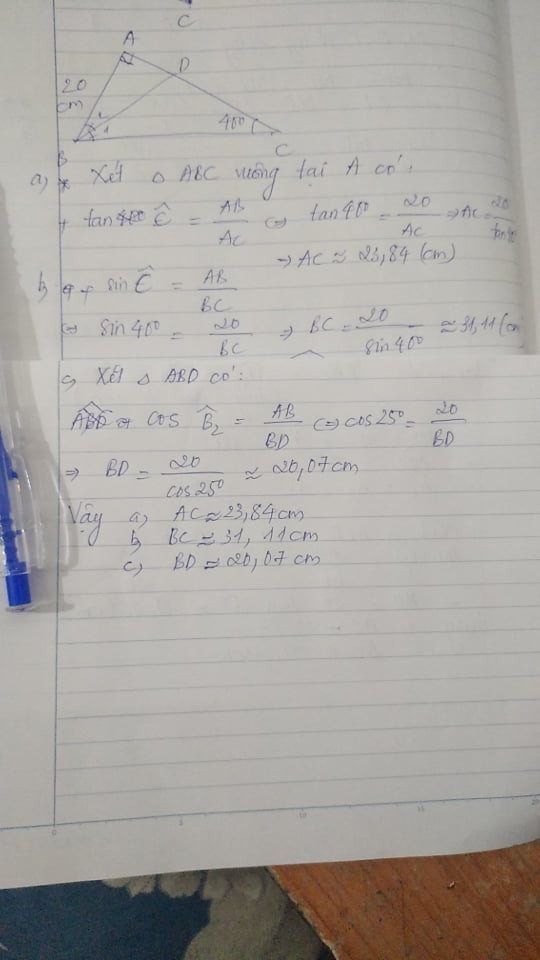 C
A
D
20
cm
2
1
40°
B
C
a) * Xét △ ABC vuông tại A có:
+ tan Ĉ = AB/AC ⇔ tan 40° = 20/AC ⇒ AC = 20/tan 40°
⇒ AC ≈ 23,84 (cm)
b) + sin Ĉ = AB/BC
⇔ sin 40° = 20/BC ⇒ BC = 20/sin 40° ≈ 31,11 (cm
c) Xét △ ABD có:
cos B̂₂ = AB/BD ⇔ cos 25° = 20/BD
⇒ BD = 20/cos 25° ≈ 20,07 cm
Vậy a) AC ≈ 23,84 cm
b) BC ≈ 31,11 cm
c) BD ≈ 20,07 cm
0 5 10 15 20